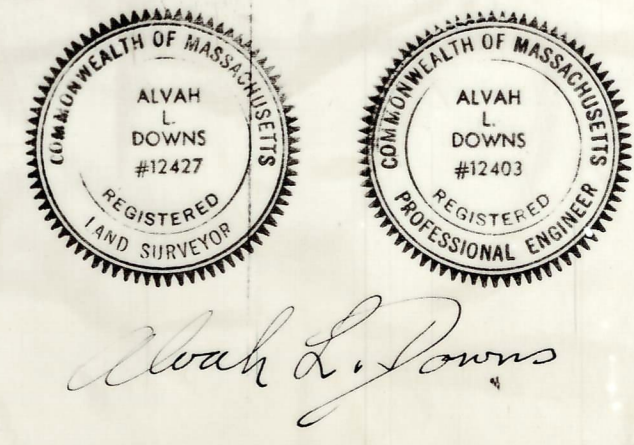 COMMONWEALTH OF MASSACHUSETTS
ALVAH
L.
DOWNS
#12427
REGISTERED
LAND SURVEYOR
COMMONWEALTH OF MASSACHUSETTS
ALVAH
L.
DOWNS
#12403
REGISTERED
PROFESSIONAL ENGINEER
Alvah L. Downs